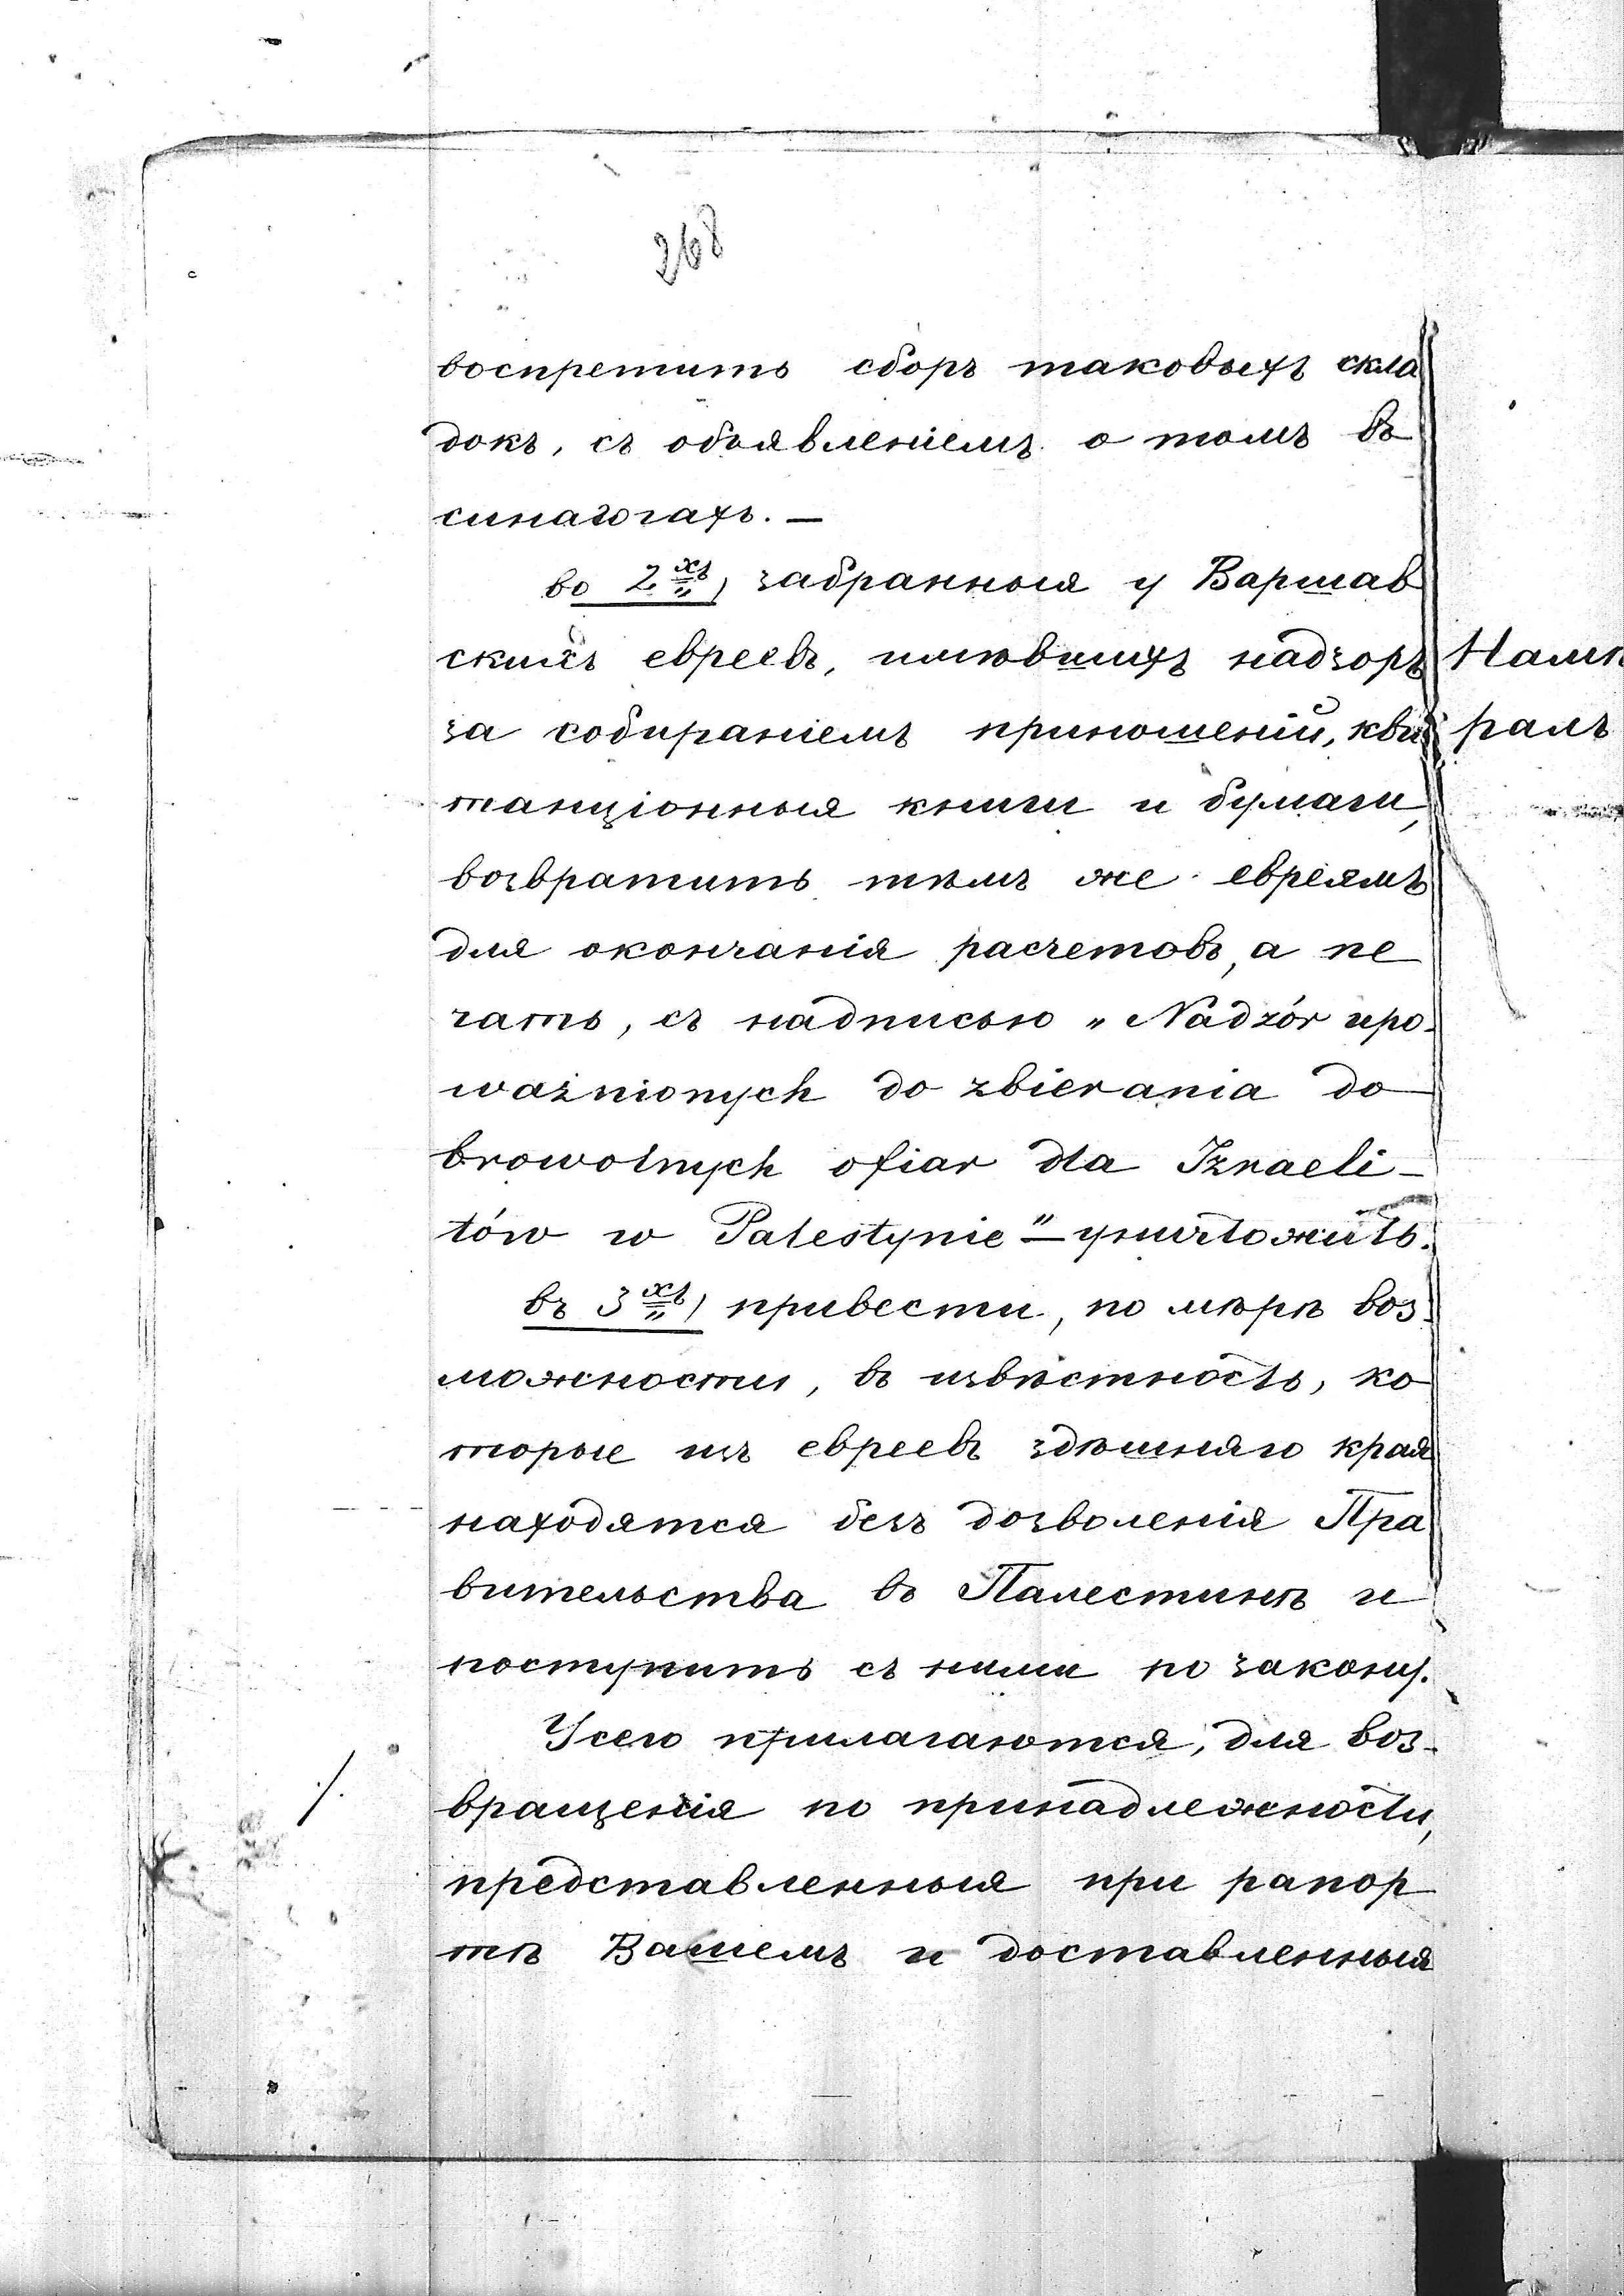 268
воспретить сборъ таковыхъ скла
докъ, съ объявленіемъ о томъ въ
синагогахъ. —
во 2хъ) забранныя у Варшав
скихъ евреевъ, имѣвшихъ надзоръ
за собираніемъ приношеній, кви
танціонныя книги и бумаги,
возвратить тѣмъ же евреямъ
для окончанія расчетовъ, а пе
чать, съ надписью „Nadzór upo-
ważnionych do zbierania do
browolnych ofiar dla Izraeli-
tów w Palestynie" — уничтожить.
въ 3хъ) привести, по мѣрѣ воз-
можности, въ извѣстность, ко
торые изъ евреевъ здѣшняго края
находятся безъ дозволенія Пра
вительства въ Палестинѣ и
поступить съ ними по закону.
У сего прилагаются, для воз-
вращенія по принадлежности,
представленныя при рапор
тѣ Вашемъ и доставленныя
./.
Намѣ
ралъ